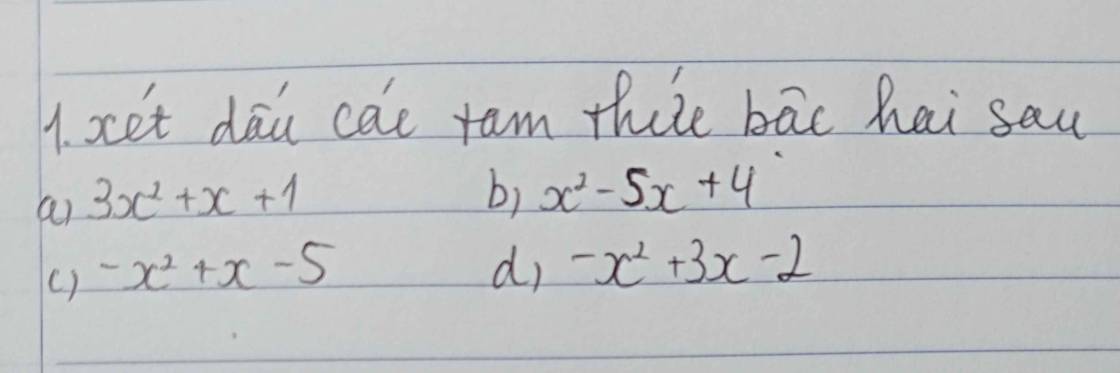 1. xét dấu các tam thức bậc hai sau
a) 3x² + x + 1 b) x² - 5x + 4
c) -x² + x - 5 d) -x² + 3x - 2